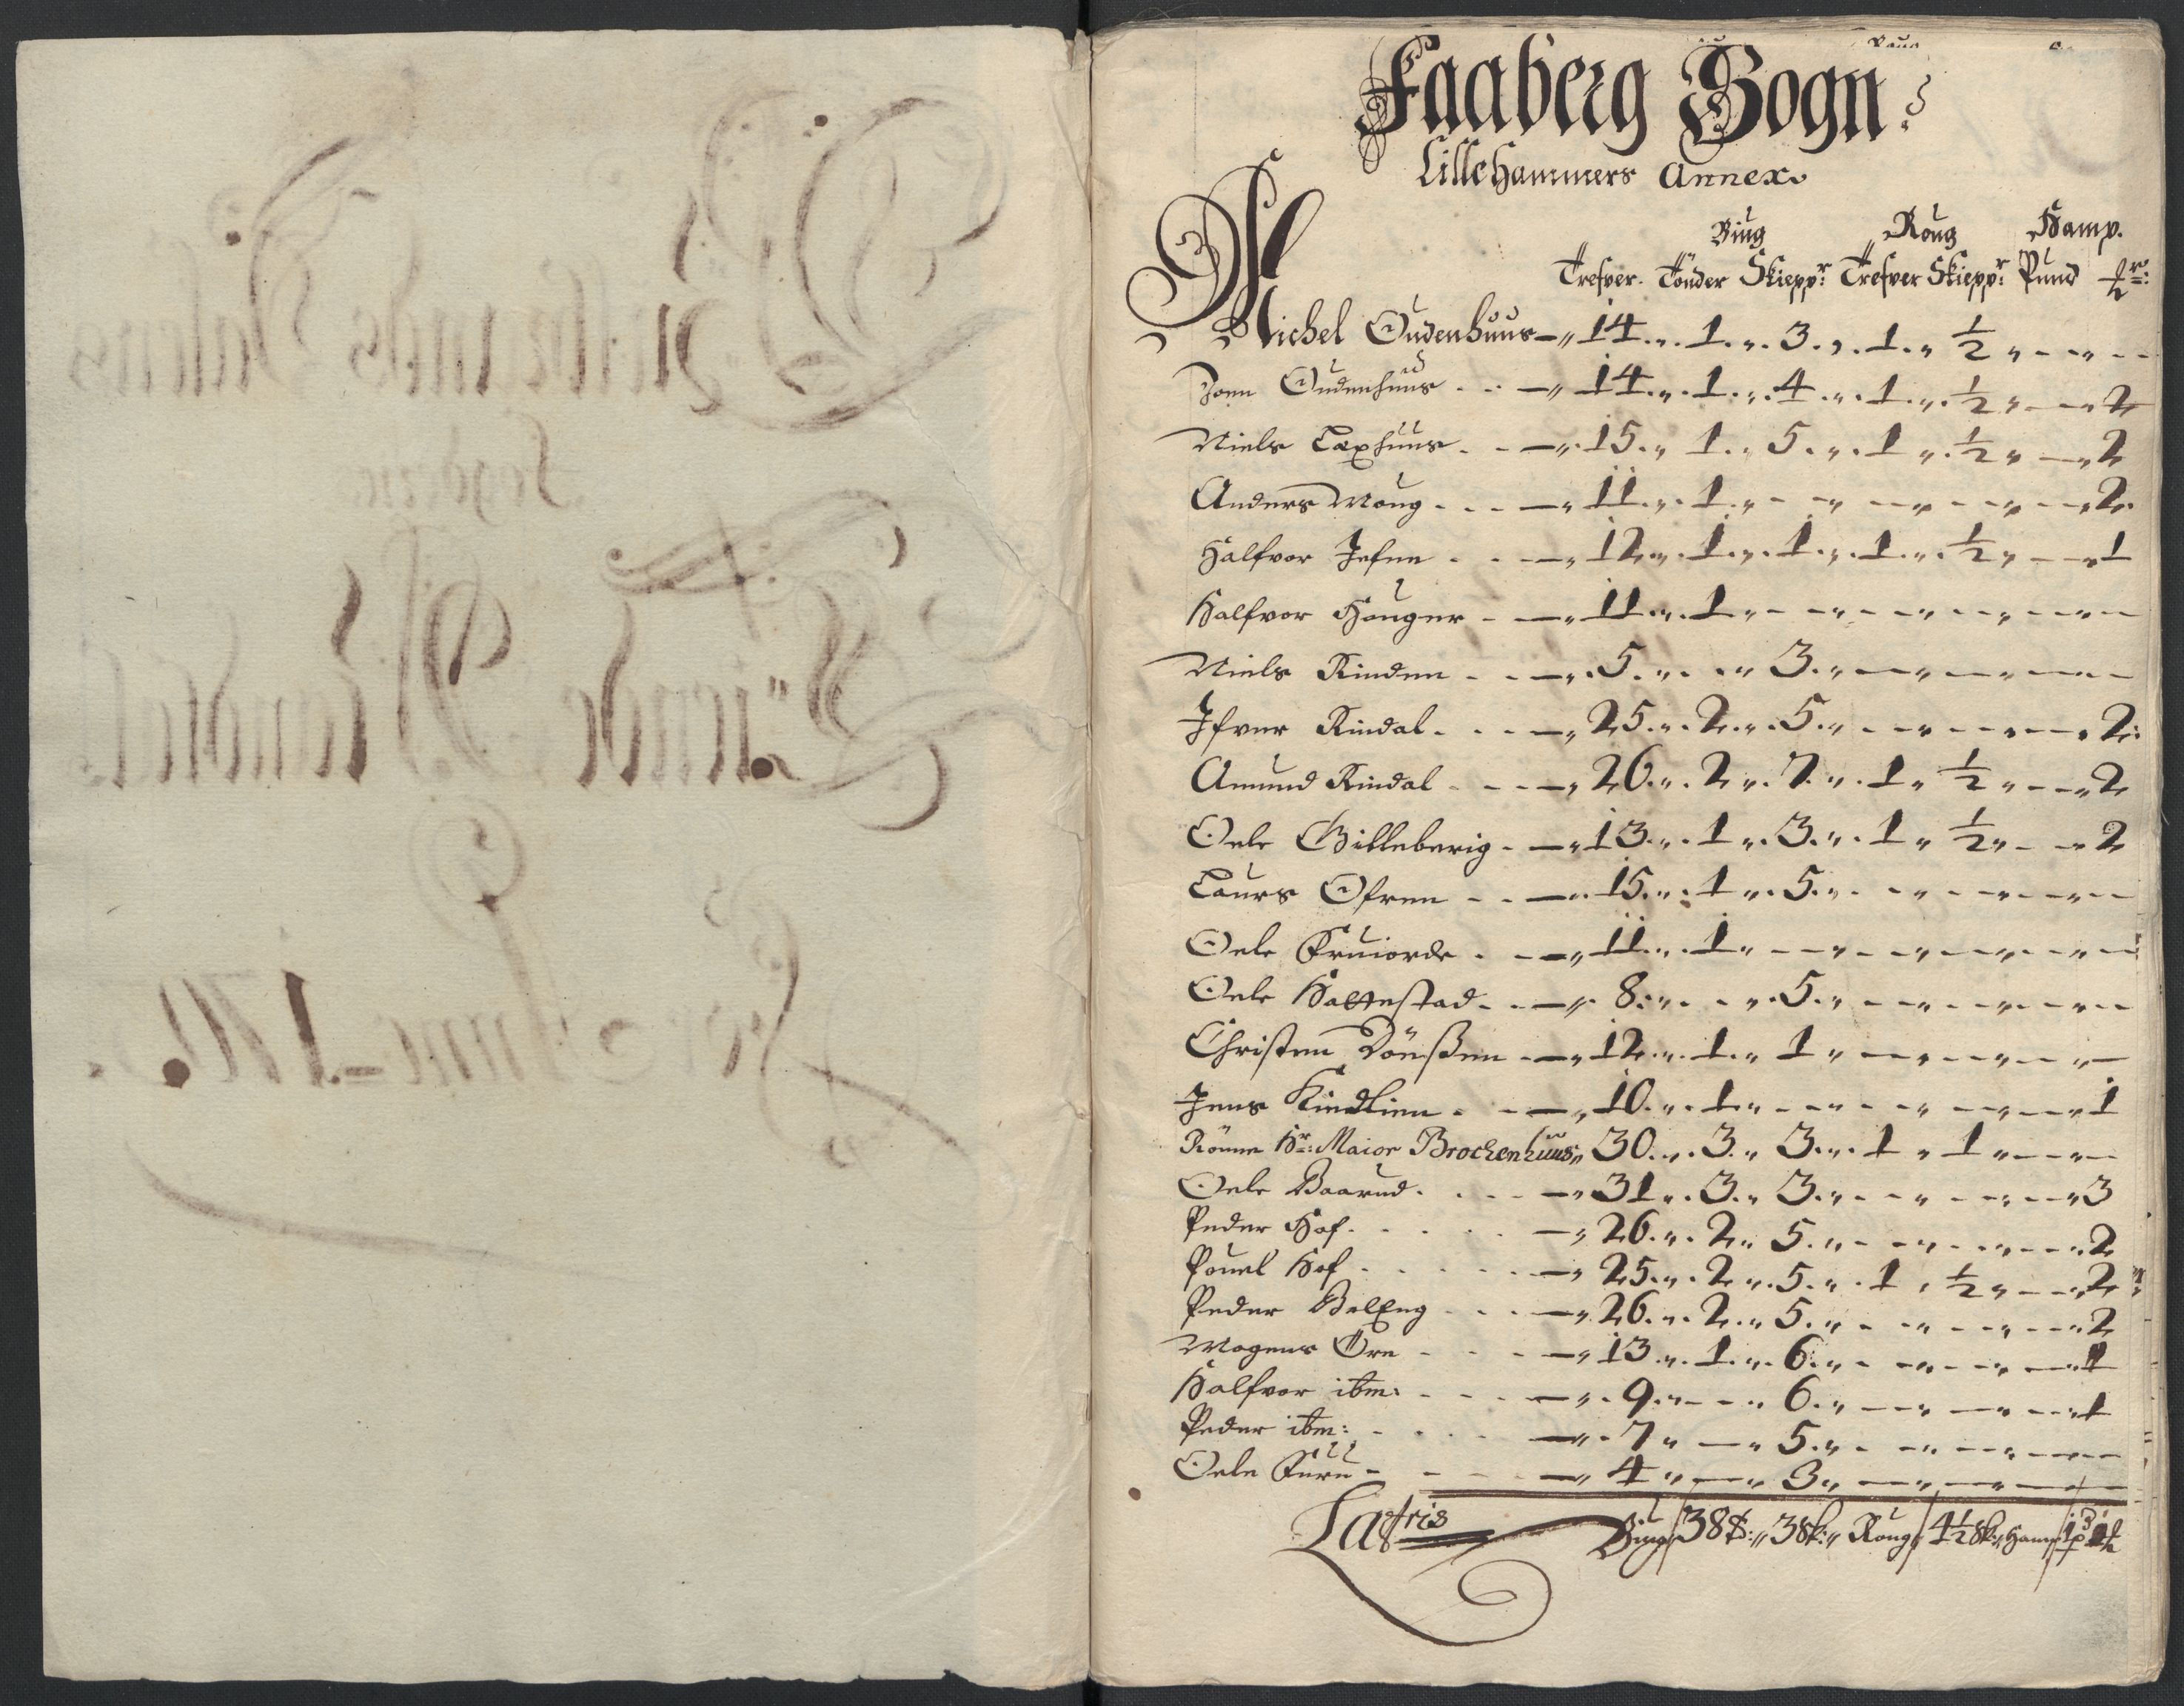 Faaberg Sogn
LilleHammers Annex
Biug Roug Hamp.
Trefver. Tönder Skiepp: Trefver Skiepp: Pund
Michel Oudenhuus 14 1 3 1 ½
Joen Oudenhuus 14 1 4 1 ½ 2
Niels Laxhuus 15 1 5 1 ½ 2
Anders Moug 11 1 2
Halfvor Jefne 12 1 1 1 ½ 1
Halfvor Houger 11 1
Niels Rinden 5 3
Ifver Rindal 25 2 5 2
Amund Rindal 26 2 7 1 ½ 2
Oele Gilleberig 13 1 3 1 ½ 2
Laurs Ofren 15 1 5
Oele Fruiorde 11 1
Oele Hattestad 8 5
Christen 12 1 1
Jens Kindlien 10 1 1
Hr: Maior Brochenhuus 30 3 3 1 1
Oele Baarud 31 3 3 3
Peder Hof 26 2 5 2
Pouel Hof 25 2 5 1 ½ 2
Peder BelEng 26 2 5 2
Mogens Öre 13 1 6 1
Halfvor ibm: 9 6 1
Peder ibm: 7 5
Oele Furu 4 3
Lateris Biug 38 3 Roug 4½ Hamp